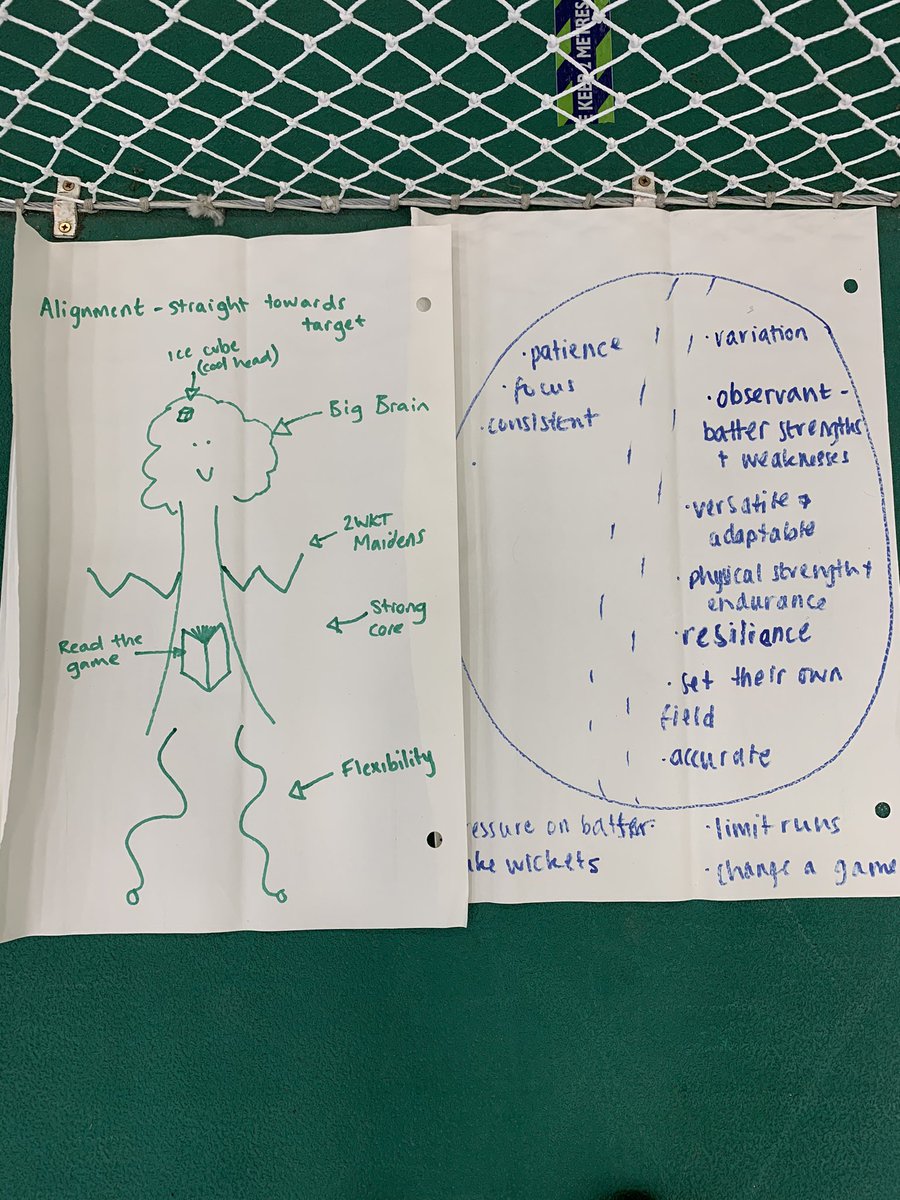 E KEEP 2 METRES
Alignment - straight towards
target
Ice cube
(cool head)
Big Brain
2WKT
Maidens
Strong
core
Read the
game
Flexibility
·patience
·focus
·consistent
·variation
·observant -
batter strengths
+ weaknesses
·versatile +
adaptable
·physical strength +
endurance
·resiliance
·set their own
field
·accurate
essure on batter·
ake wickets
·limit runs
·change a game